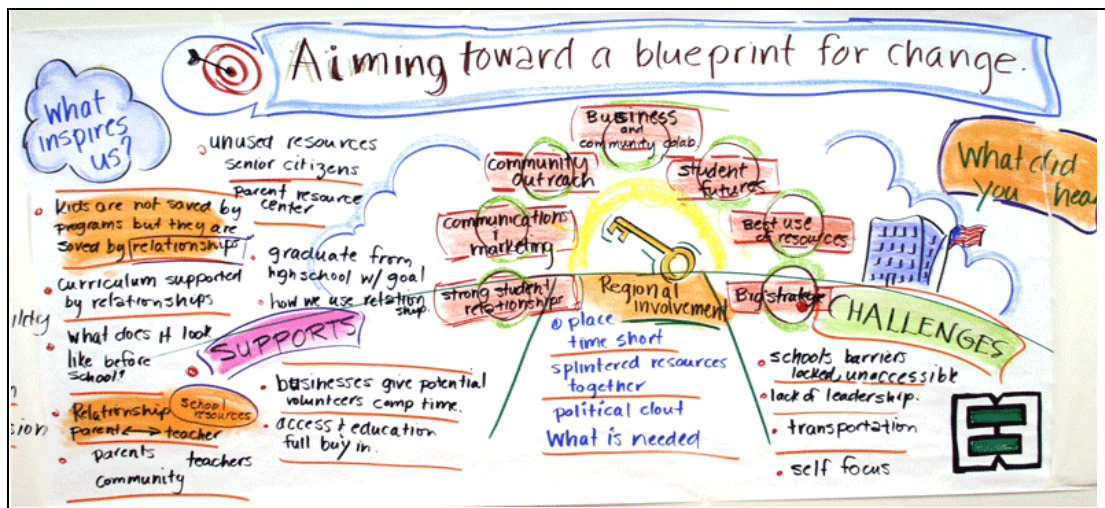 Aiming toward a blueprint for change.
What
inspires
us?
kids are not saved by
programs but they are
saved by relationships
curriculum supported
by relationships
what does it look
like before
school?
Relationship
parent ↔ teacher
school
resources
parents teachers
community
unused resources
senior citizens
parent resource
center
graduate from
highschool w/ goal
how we use relation
ship.
SUPPORTS
businesses give potential
volunteers comp time.
access & education
full buy in.
Business
and
community colab.
community
outreach
student
futures
communications
&
marketing
Best use
of resources
strong student
relationships
Regional
involvement
Big strategy
@ place
time short
splintered resources
together
political clout
What is needed
What did
you hea
CHALLENGES
schools barriers
locked, unaccessible
lack of leadership.
transportation
self focus